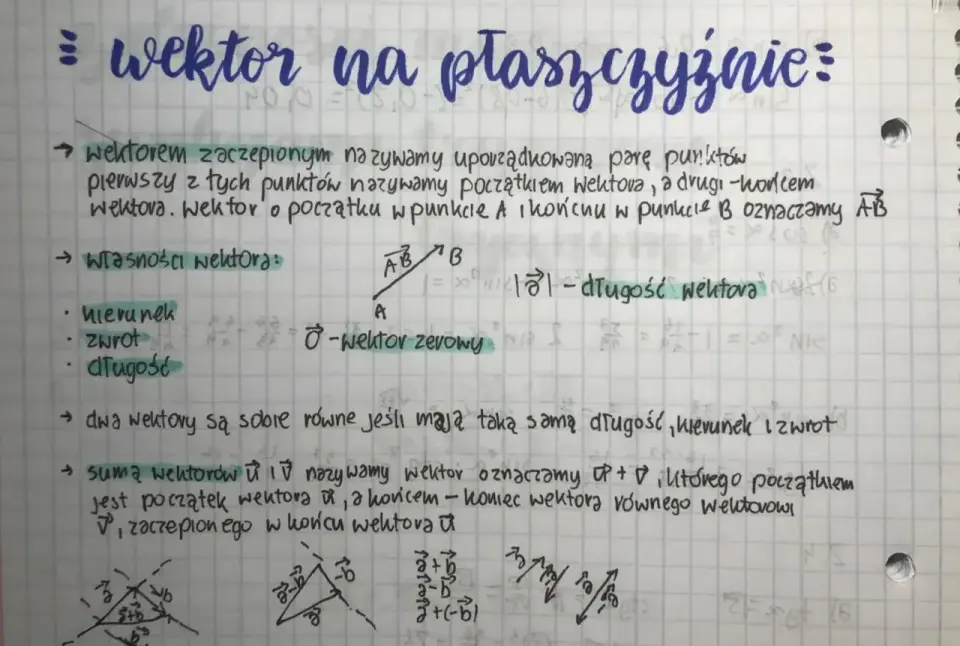 wektor na płaszczyźnie
→ wektorem zaczepionym nazywamy uporządkowaną parę punktów
pierwszy z tych punktów nazywamy początkiem wektora, a drugi - końcem
wektora. wektor o początku w punkcie A i końcnu w punkcie B oznaczamy A⃗B
→ własności wektora:
A⃗B
B
A
|a⃗| - długość wektora
· kierunek
· zwrot
0⃗ - wektor zerowy
· długość
→ dwa wektory są sobie równe jeśli mają taką samą długość, kierunek i zwrot
→ sumą wektorów u⃗ i v⃗ nazywamy wektor oznaczamy u⃗ + v⃗, którego początkiem
jest początek wektora u⃗, a końcem - koniec wektora równego wektorowi
v⃗, zaczepionego w końcu wektora u⃗
a⃗
b⃗
a⃗+b⃗
b⃗
a⃗-b⃗
-b⃗
a⃗
a⃗+b⃗
a⃗-b⃗
a⃗+(-b⃗)